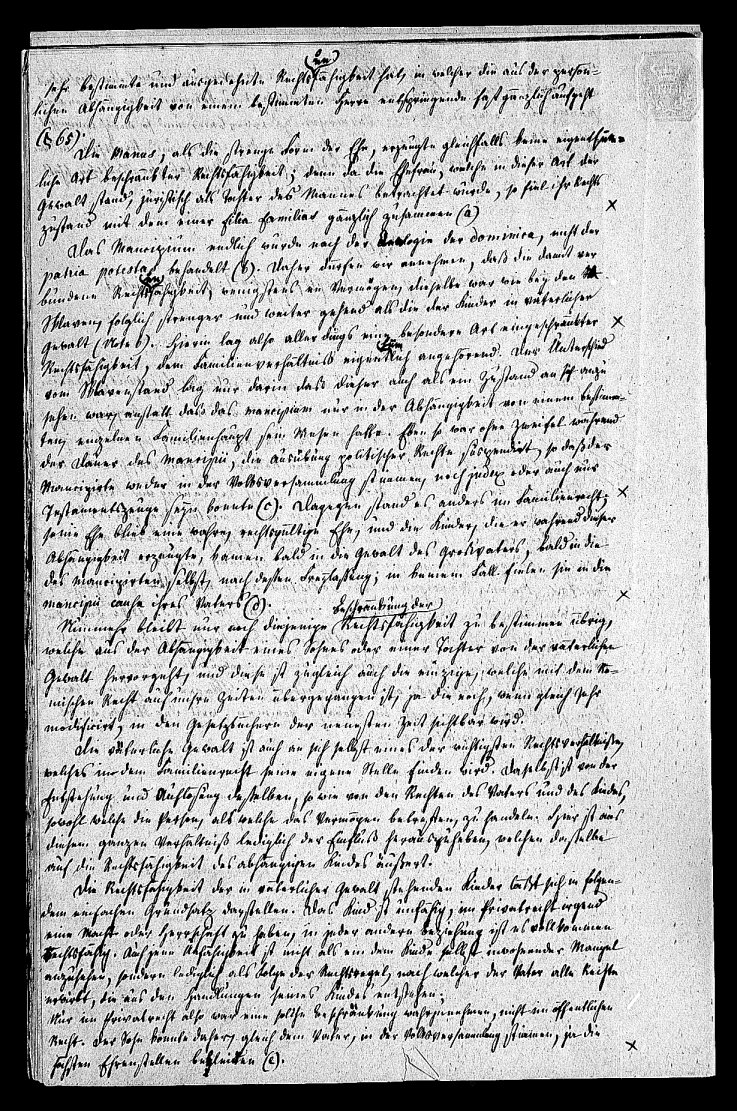 un
sehr bestimmte und ausgedehnte Rechtsfähigkeit hat, in welcher die aus der persön-
lichen Abhängigkeit von einem bestimmten Herrn entspringende fast gänzlich aufgeht
(§ 65).
Die Manus, als die strenge Form der Ehe, erzeugte gleichfalls keine eigenthüm-
liche Art beschränkter Rechtsfähigkeit; denn da die Ehefrau, welche in dieser Art der
Gewalt stand, juristisch als Tochter des Mannes betrachtet wurde, so fiel ihr Rechts
zustand mit dem einer filia familias gänzlich zusammen (a)
Das Mancipium endlich wurde nach der Analogie der dominica, nicht der
patria potestas behandelt (b). Daher dürfen wir annehmen, daß die damit ver
un
bundene Rechtsfähigkeit, wenigstens im Vermögen, dieselbe war wie bey den
Sklaven, folglich strenger und weiter gehend als die der Kinder in väterlicher
Gewalt (Note b). Hierin lag also allerdings eine besondere Art eingeschränkter
Rechtsfähigkeit, dem Familienverhältniß eigenthümlich angehörend. Der Unterschied
vom Sklavenstand lag nur darin daß dieser auch als ein Zustand an sich anzu
sehen war, anstatt daß das mancipium nur in der Abhängigkeit von einem bestimm-
ten, einzelnen Familienhaupt sein Wesen hatte. Eben so war ohne Zweifel während
der Dauer des mancipii, die Ausübung politischer Rechte suspendirt, so daß der
Mancipirte weder in der Volksversammlung stimmen, noch judex oder auch nur
Testamentszeuge seyn konnte (c). Dagegen stand es anders im Familienrecht:
seine Ehe blieb eine wahre, rechtsgültige Ehe, und die Kinder, die er während dieser
Abhängigkeit erzeugte, kamen bald in die Gewalt des Großvaters, bald in die
des Mancipirten selbst, nach dessen Freylassung; in keinem Fall fielen sie in die
mancipii causa ihres Vaters (d).
Beschränkung der
Nunmehr bleibt nur noch diejenige Rechtsfähigkeit zu bestimmen übrig,
welche aus der Abhängigkeit eines Sohnes oder einer Tochter von der väterlichen
Gewalt hervorgeht, und diese ist zugleich auch die einzige, welche mit dem Rö-
mischen Recht auf unsre Zeiten übergegangen ist, ja die noch, wenn gleich sehr
modificirt, in den Gesetzbüchern der neuesten Zeit sichtbar wird.
Die väterliche Gewalt ist auch an sich selbst eines der wichtigsten Rechtsverhältnisse,
welches in dem Familienrecht seine eigene Stelle finden wird. Daselbst ist von der
Entstehung und Auflösung desselben, so wie von den Rechten des Vaters und des Kindes,
sowohl welche die Person, als welche das Vermögen betreffen, zu handeln. Hier ist aus
diesem ganzen Verhältniß lediglich der Einfluß herauszuheben, welchen dasselbe
auf die Rechtsfähigkeit des abhängigen Kindes äußert.
Die Rechtsfähigkeit der in väterlicher Gewalt stehenden Kinder läßt sich in folgen-
dem einfachen Grundsatz darstellen. Das Kind ist unfähig, im Privatrecht irgend
eine Macht oder Herrschaft zu haben, in jeder andern Beziehung ist es vollkommen
rechtsfähig. Auch jene Unfähigkeit ist nicht als ein dem Kinde selbst inwohnender Mangel
anzusehen, sondern lediglich als Folge der Rechtsregel, nach welcher der Vater alle Rechte
erwirbt, die aus den Handlungen seines Kindes entstehen;
Nur im Privatrecht also war eine solche Beschränkung wahrzunehmen, nicht im öffentlichen
Recht. Der Sohn konnte daher, gleich dem Vater, in der Volksversammlung stimmen, ja die
höchsten Ehrenstellen bekleiden (e).